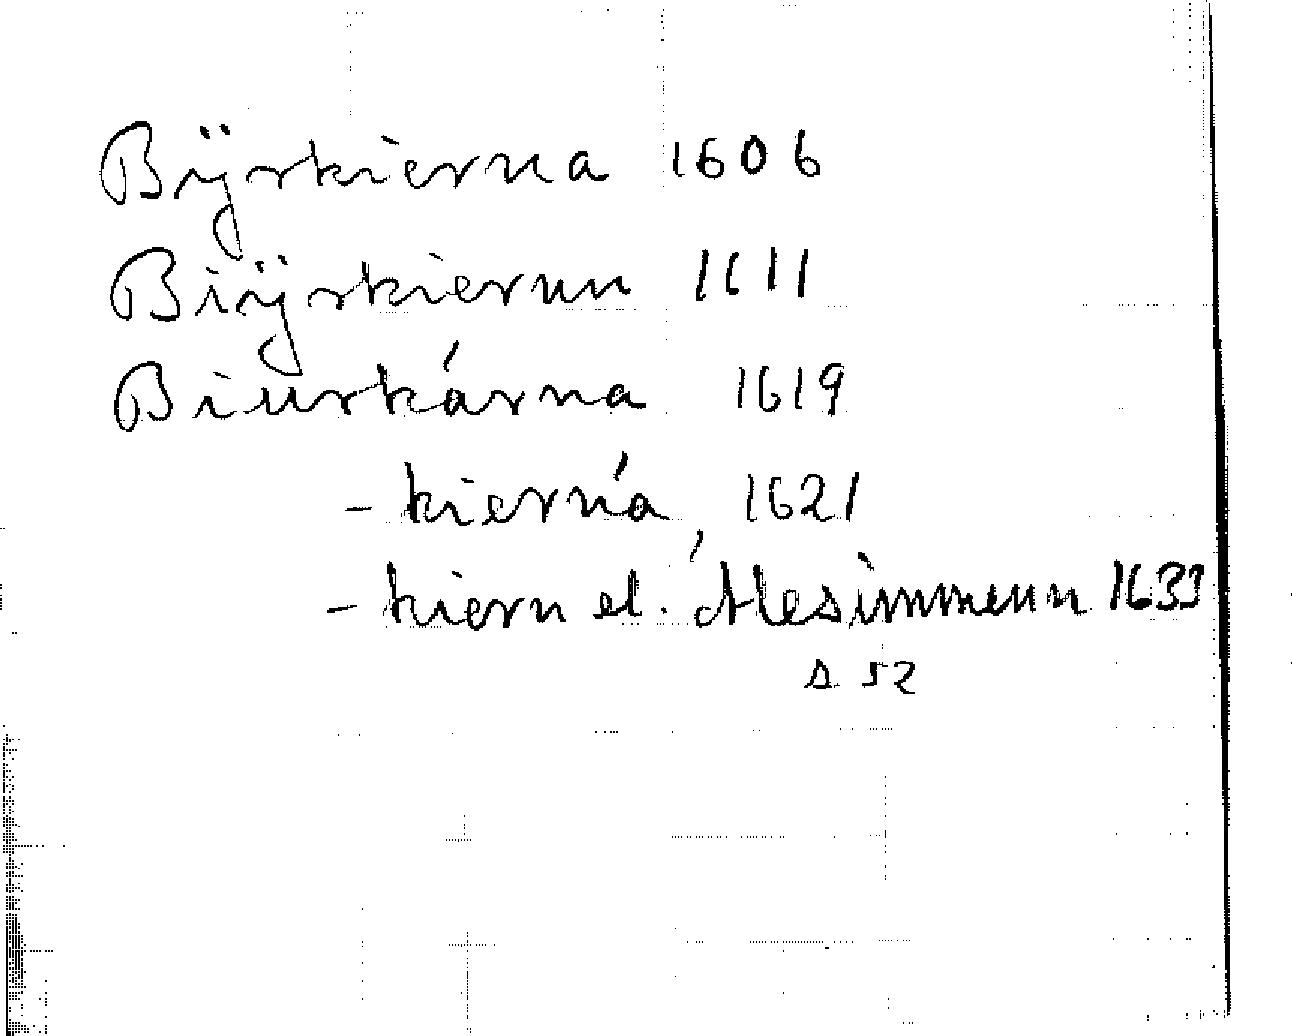 Bijrkierna 1606
Biÿrkiernn 1611
Biurkárna 1619
- kierná 1621
- kiern el. Álesimmenn 1633
s 52